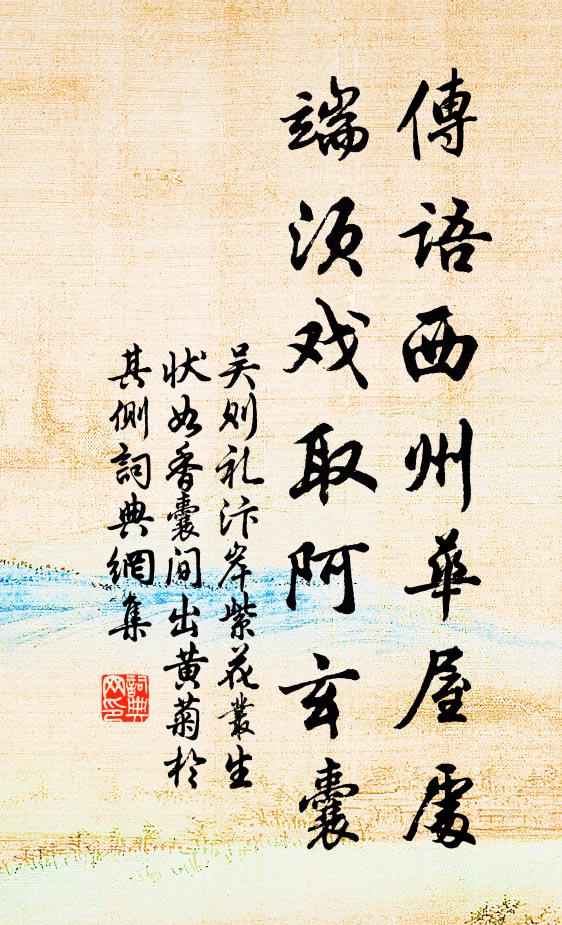 傳語西州華屋處
端須戏取阿玄囊
吴则礼汴岸紫花叢生
状如香囊间出黄菊於
其侧詞典網集
詞典网印